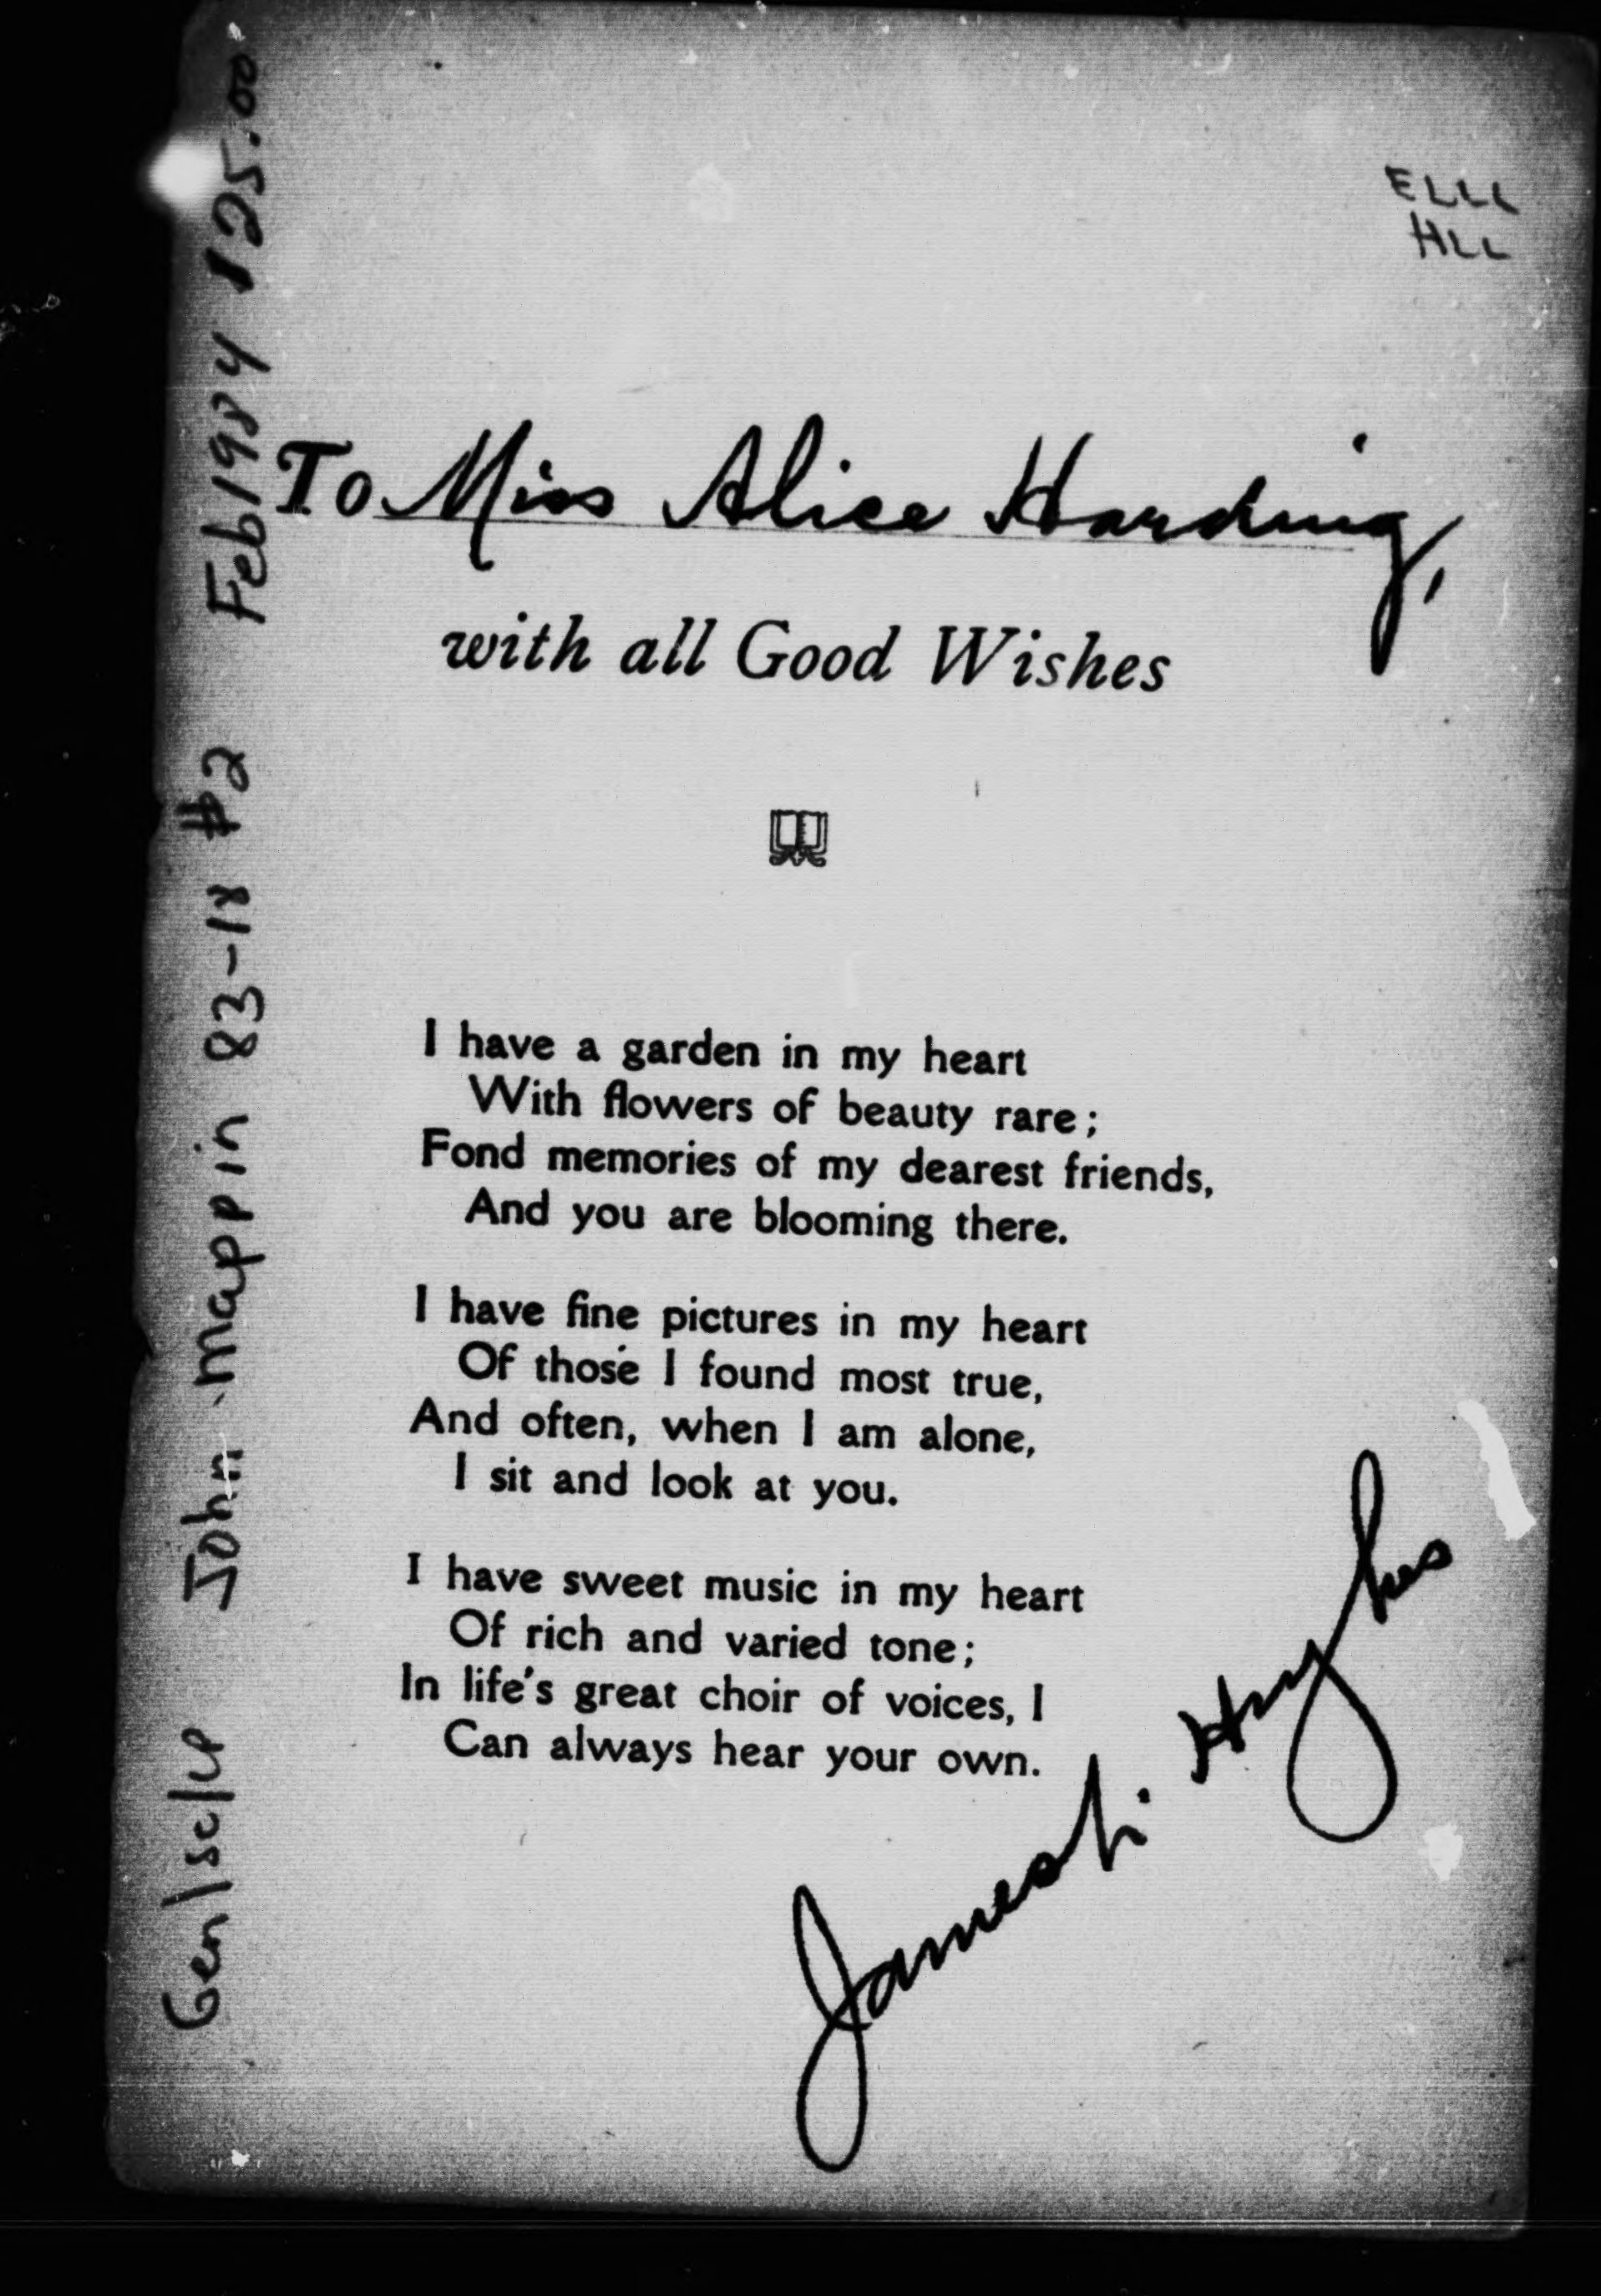 ELLL
HLL
To Miss Alice Harding,
with all Good Wishes
I have a garden in my heart
With flowers of beauty rare;
Fond memories of my dearest friends,
And you are blooming there.
I have fine pictures in my heart
Of those I found most true,
And often, when I am alone,
I sit and look at you.
I have sweet music in my heart
Of rich and varied tone;
In life's great choir of voices, I
Can always hear your own.
James L. Hughes
Gen/sc/up John mappin 83-18 #2 Feb 1984 125.00